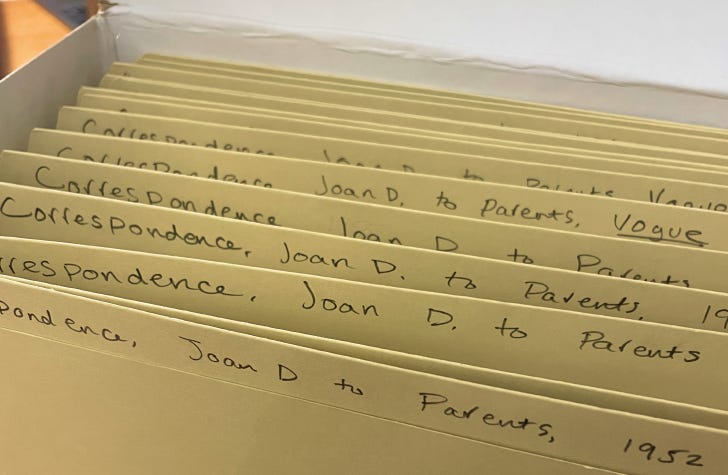 Correspondence Joan D. to Parents Vogue
Correspondence Joan D. to Parents, Vogue
Correspondence Joan D to Parents
Correspondence, Joan D. to Parents, 19
rrespondence, Joan D. to Parents
pondence, Joan D to Parents, 1952